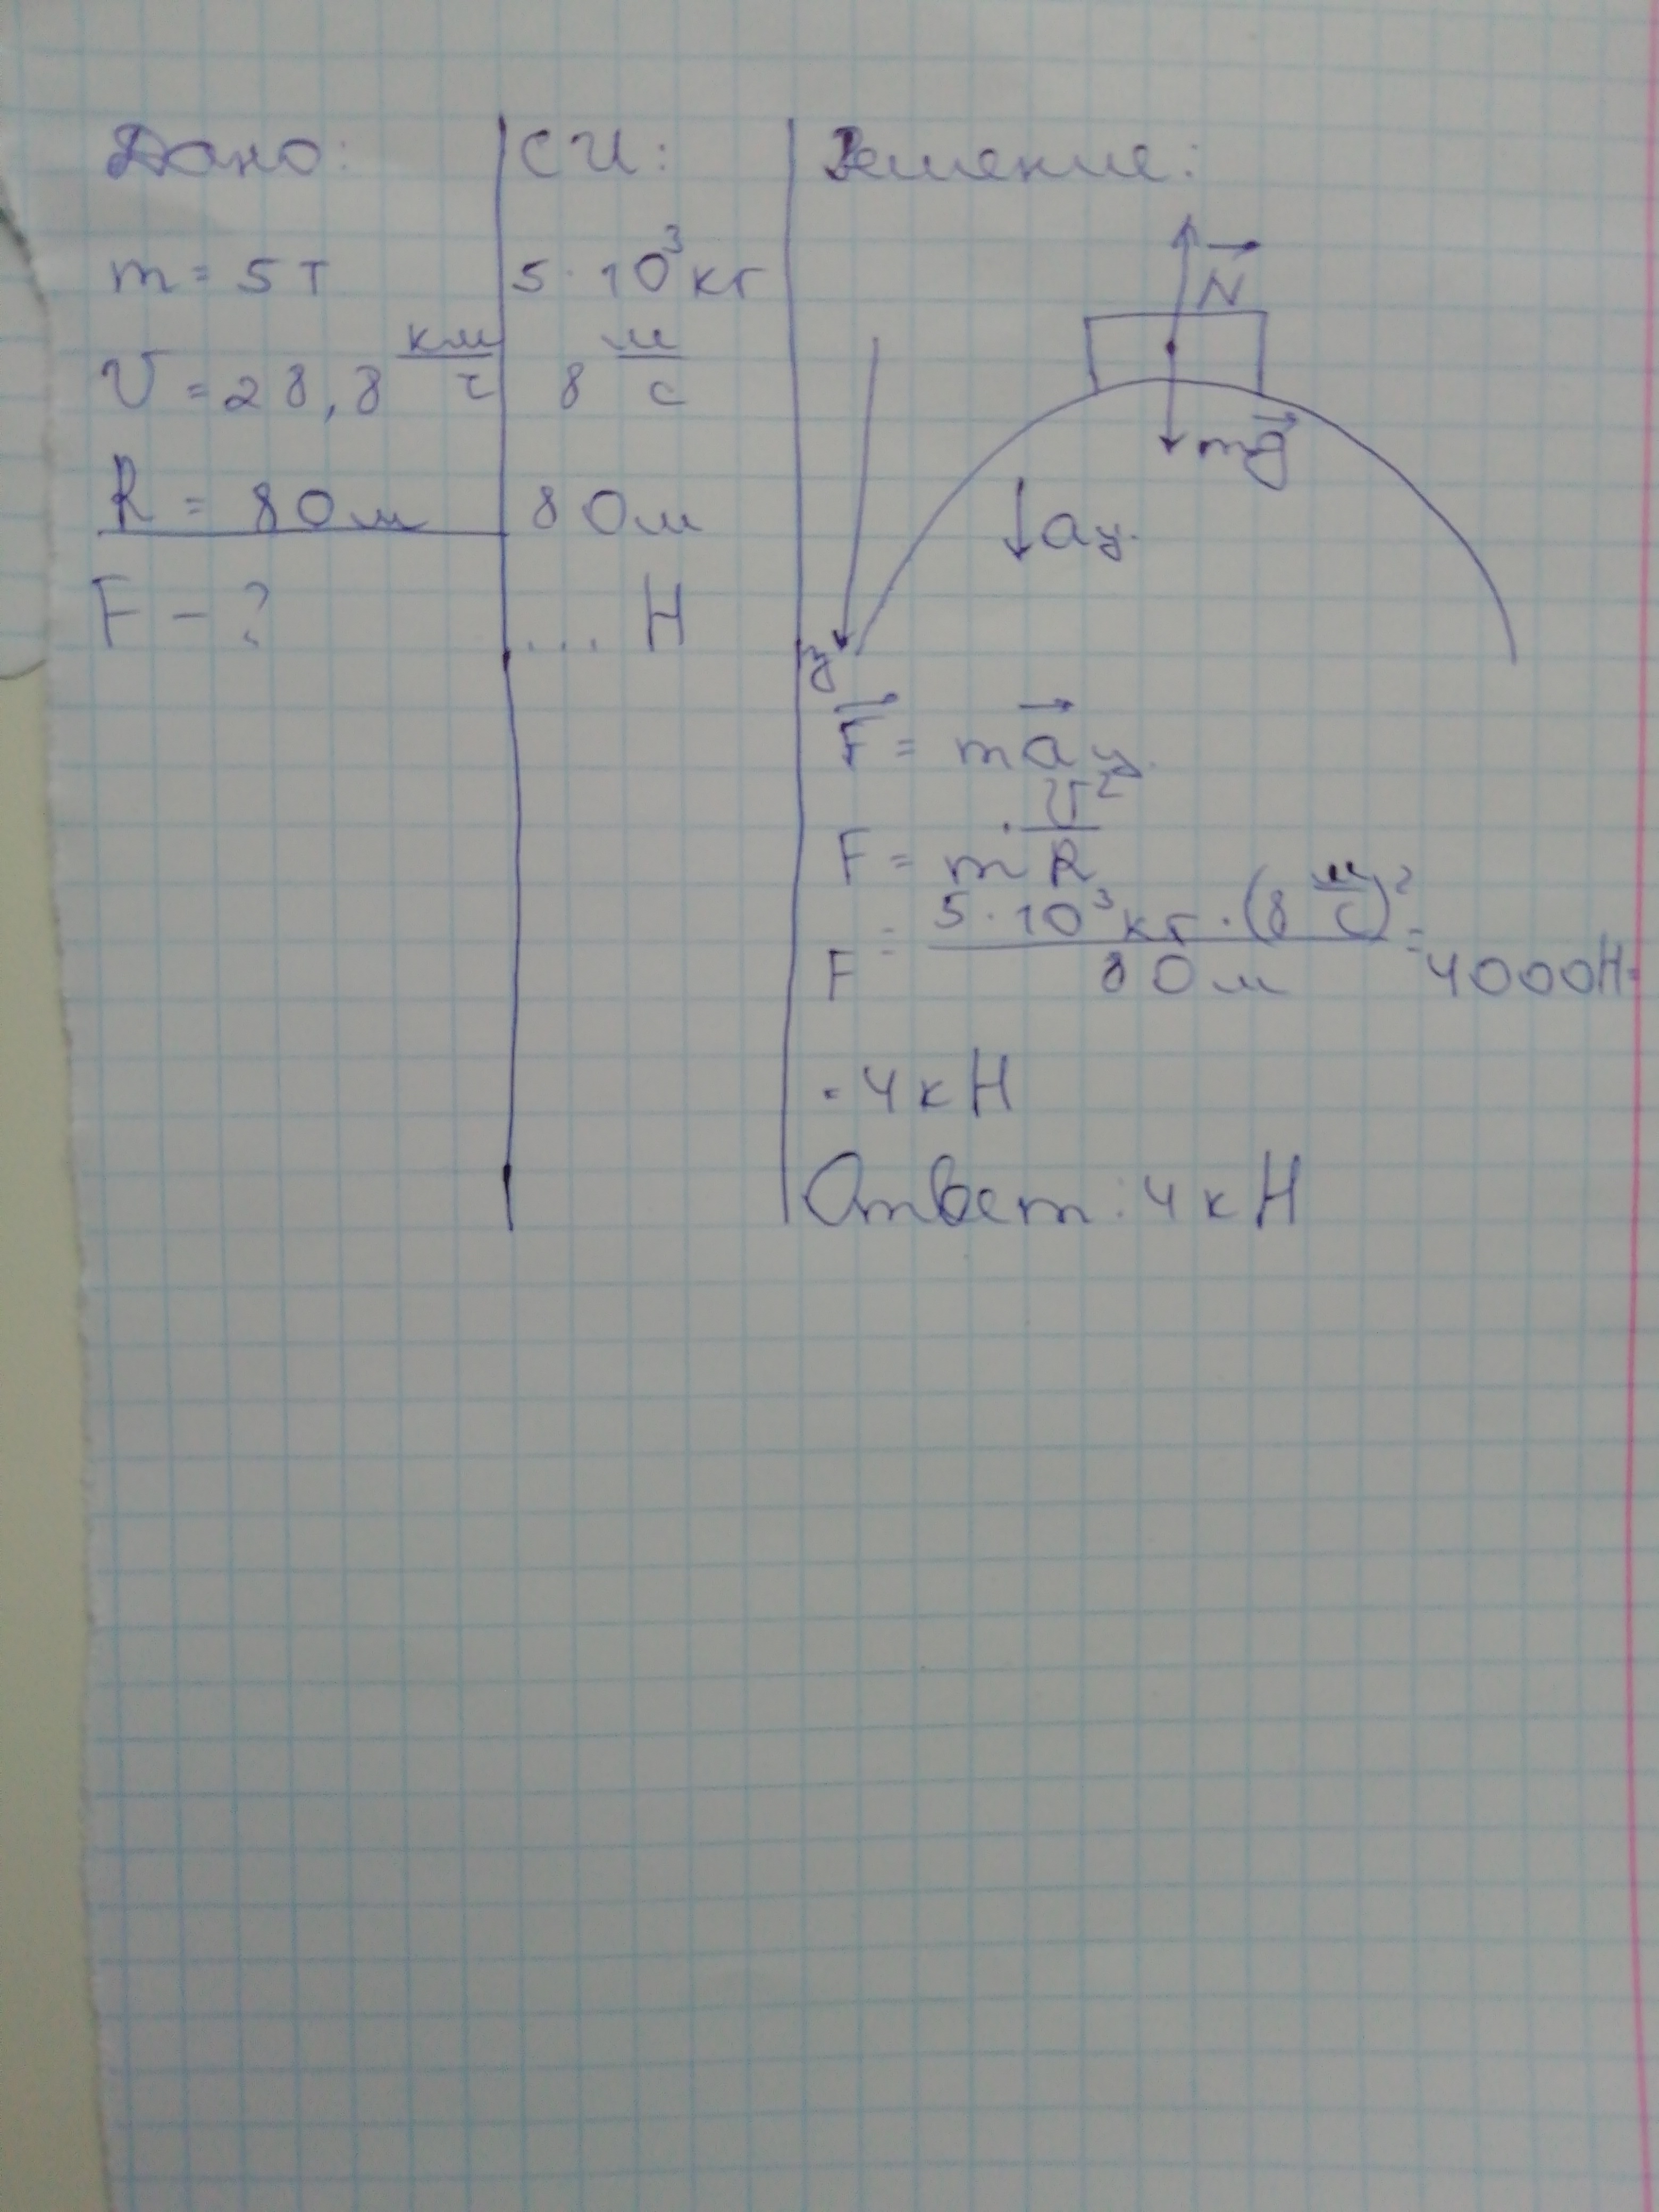 Дано:
m = 5 т
V = 28,8 км/ч
R = 80 м
F - ?
СИ:
5 · 10³ кг
8 м/с
80 м
... Н
Решение:
N
mg
aц.
y
F = maц.
F = m · V²/R
F = 5 · 10³ кг · (8 м/с)² / 80 м = 4000 Н =
= 4 кН
Ответ: 4 кН